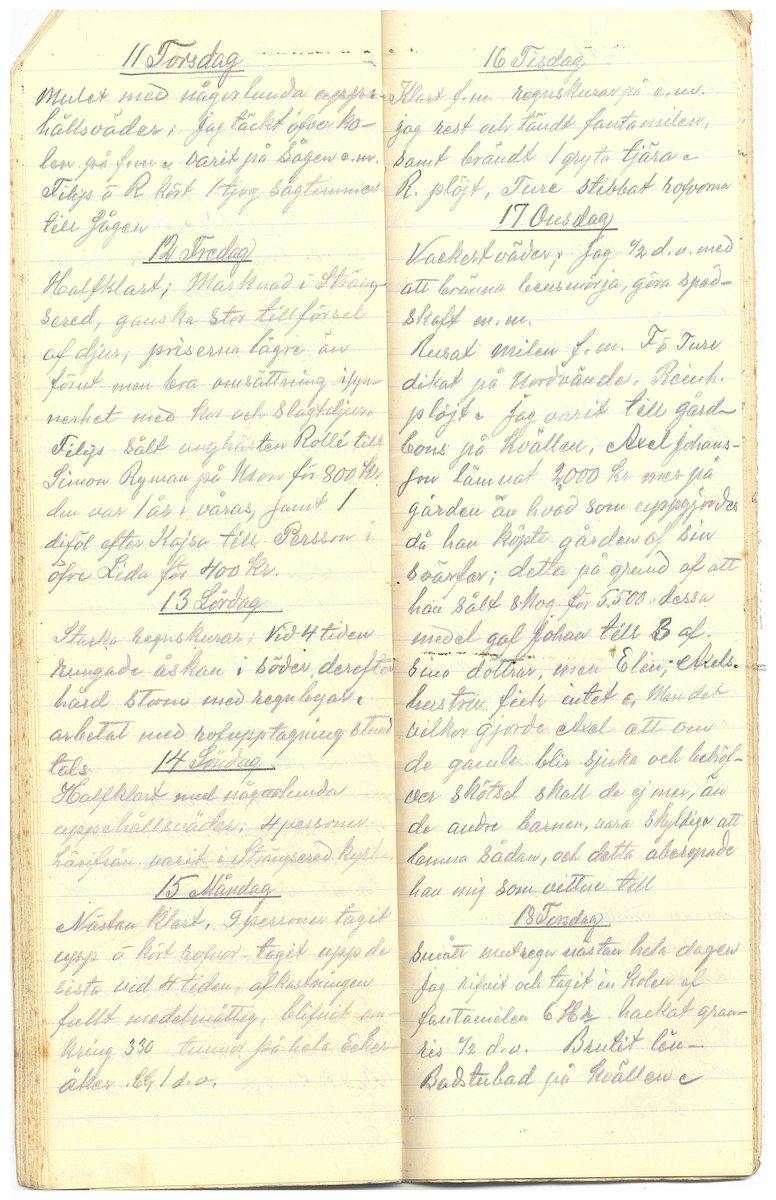 11 Torsdag
Mulet med någorlunda uppe-
hållsväder; Jag täckt öfver ko-
len på f.m. varit på Sågen e.m.
Filips o R kört 1 tjog sågtimmer
till Sågen
12 Fredag
Halfklart; Marknad i Sträng-
sered, ganska stor tillförsel
af djur; priserna lägre än
förut men bra omsättning isyn-
nerhet med kor och slagtdjur.
Filips sålt unghästen Rollé till
Simon Ryman på Mon för 800 Kr.
den var 1 år i våras, samt 1
diföl efter Kajsa till Persson i
öfre Lida för 400 Kr.
13 Lördag
Starka regnskurar; Vid 4 tiden
rungade åskan i söder, derefter
hård storm med regnbyar.
arbetat med rofupptagning stund
tals
14 Söndag
Halfklart med någorlunda
uppehållsväder; 4 personer
härifrån varit i Strängsered kyrk
15 Måndag
Nästan klart. 9 personer tagit
upp o kört rofvor tagit upp de
sista vid 4 tiden, afkastningen
fullt medelmåttig, blifvit om-
kring 330 tunnor på hela Ecker-
åker. 1 d.v.
16 Tisdag
Klart f.m. regnskurar på e.m.
jag rest och tändt fantamilen,
samt brändt 1 gryta tjära
R. plöjt, Ture stibbat rofvorna
17 Onsdag
Vackert väder; Jag 1/2 d.v. med
att bränna bensmörja, göra spad-
skaft m.m.
Rusat milen f.m. F o Ture
dikat på Nordvände. Reinh.
plöjt. Jag varit till gård-
bons på kvällen, Axel Johans-
son lämnat 2000 kr mer på
gården än hvad som uppgjordes
då han köpte gården af sin
svärfar; detta på grund af att
han sålt skog för 5,500. dessa
medel gaf Johan till 3 af
sina döttrar, men Elin; Axels
hustru fick intet. Men det
vilkor gjorde Axel att om
de gamle blir sjuka och behöf-
ver skötsel skall de ej mer, än
de andre barnen, vara skyldiga att
lemna sådan, och detta åberopade
han mig som vittne till
18 Torsdag
Smått metregn nästan hela dagen
Jag rifvit och tagit in Kolen af
fantamilen 6 Hl. hackat gran-
ris 1/2 d.v. Brutit lin
Badstubad på kvällen